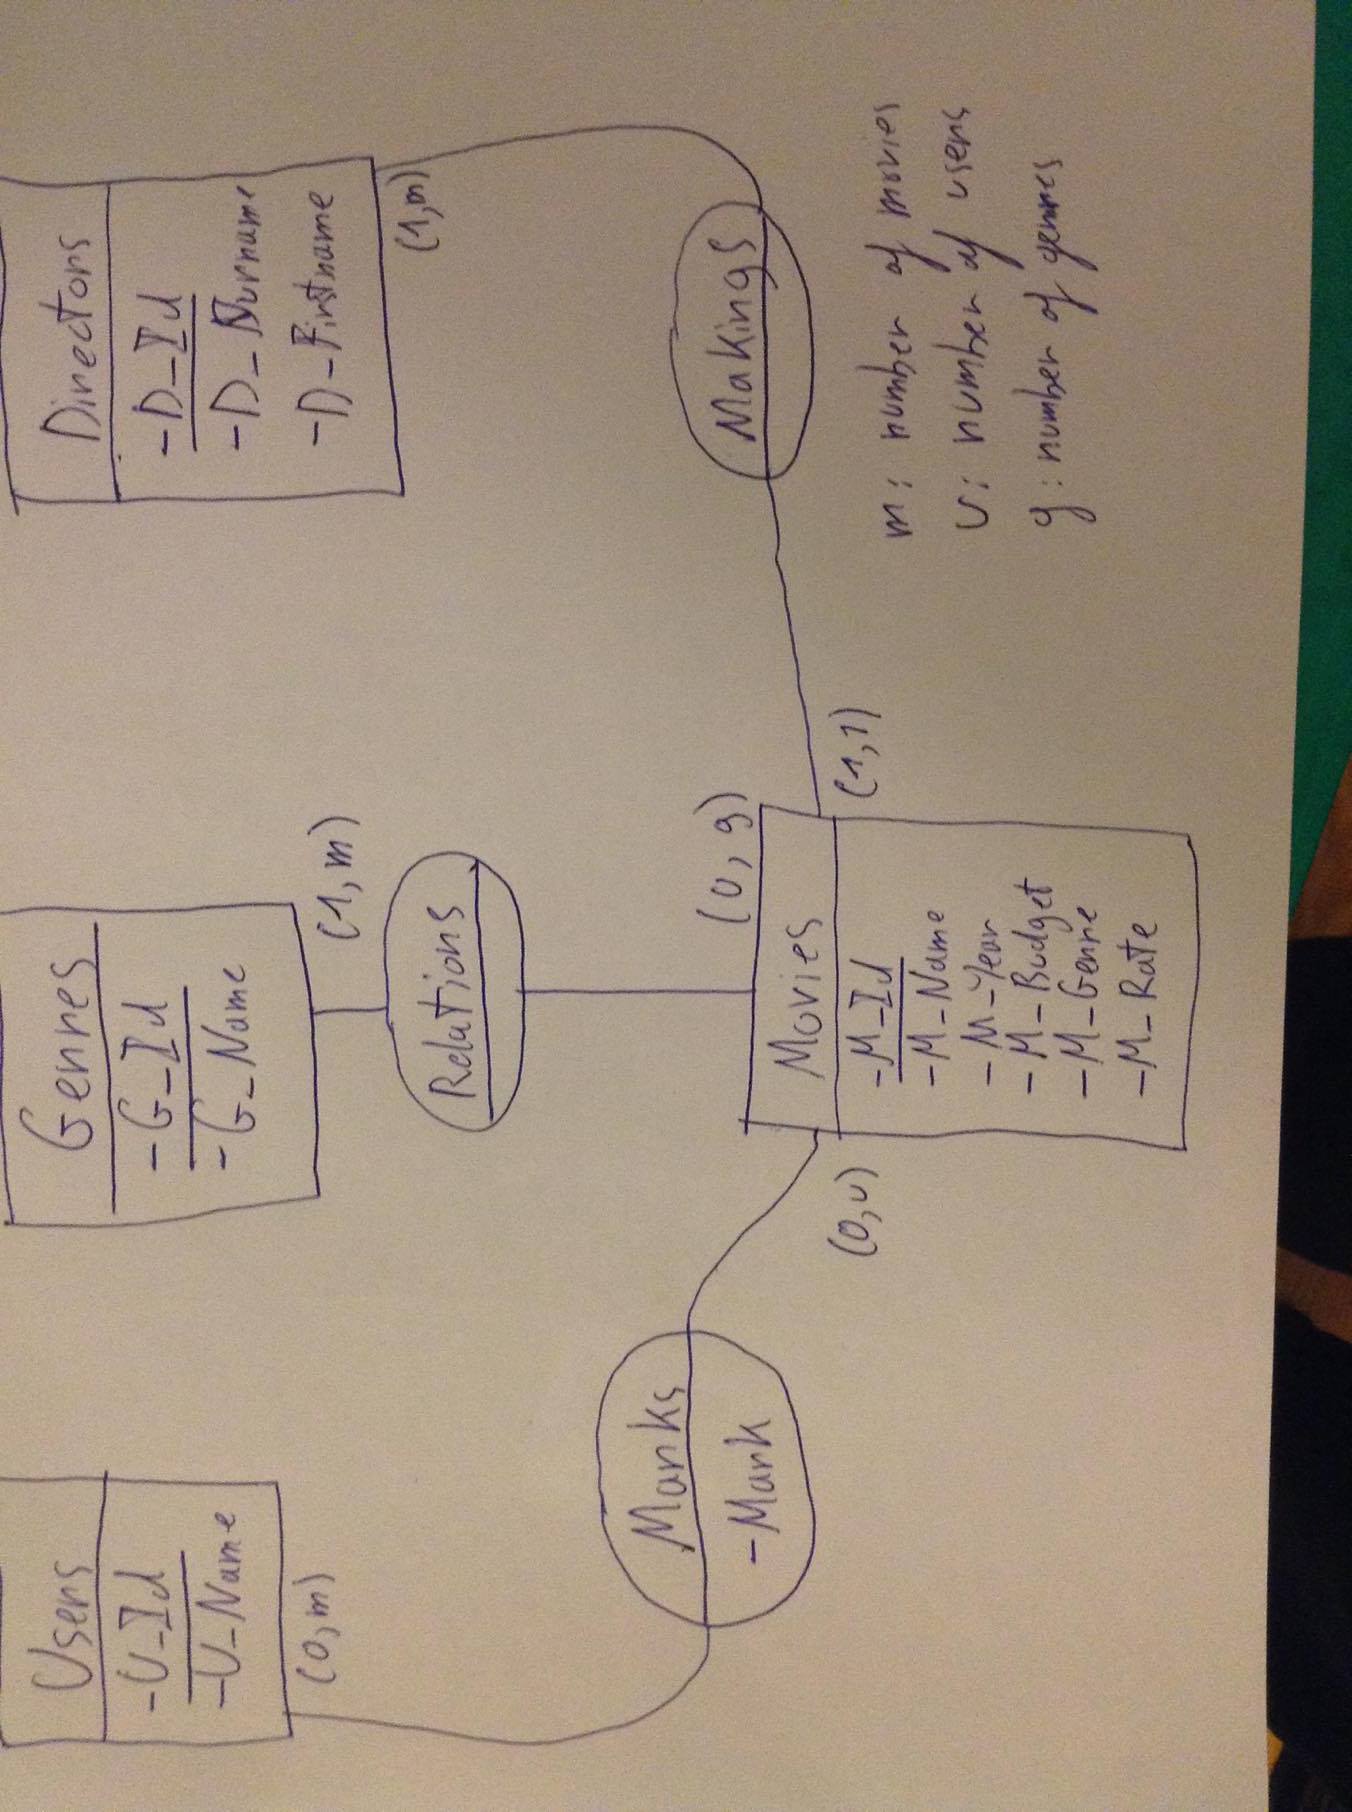 Users
-U_Id
-U_Name
(0,m)
Genres
-G_Id
-G_Name
(1,m)
Directors
-D_Id
-D_Surname
-D_Firstname
(1,m)
Relations
Marks
-Mark
Makings
(0,u)
(0,g)
(1,1)
Movies
-M_Id
-M_Name
-M_Year
-M_Budget
-M_Genre
-M_Rate
m: number of movies
u: number of users
g: number of genres